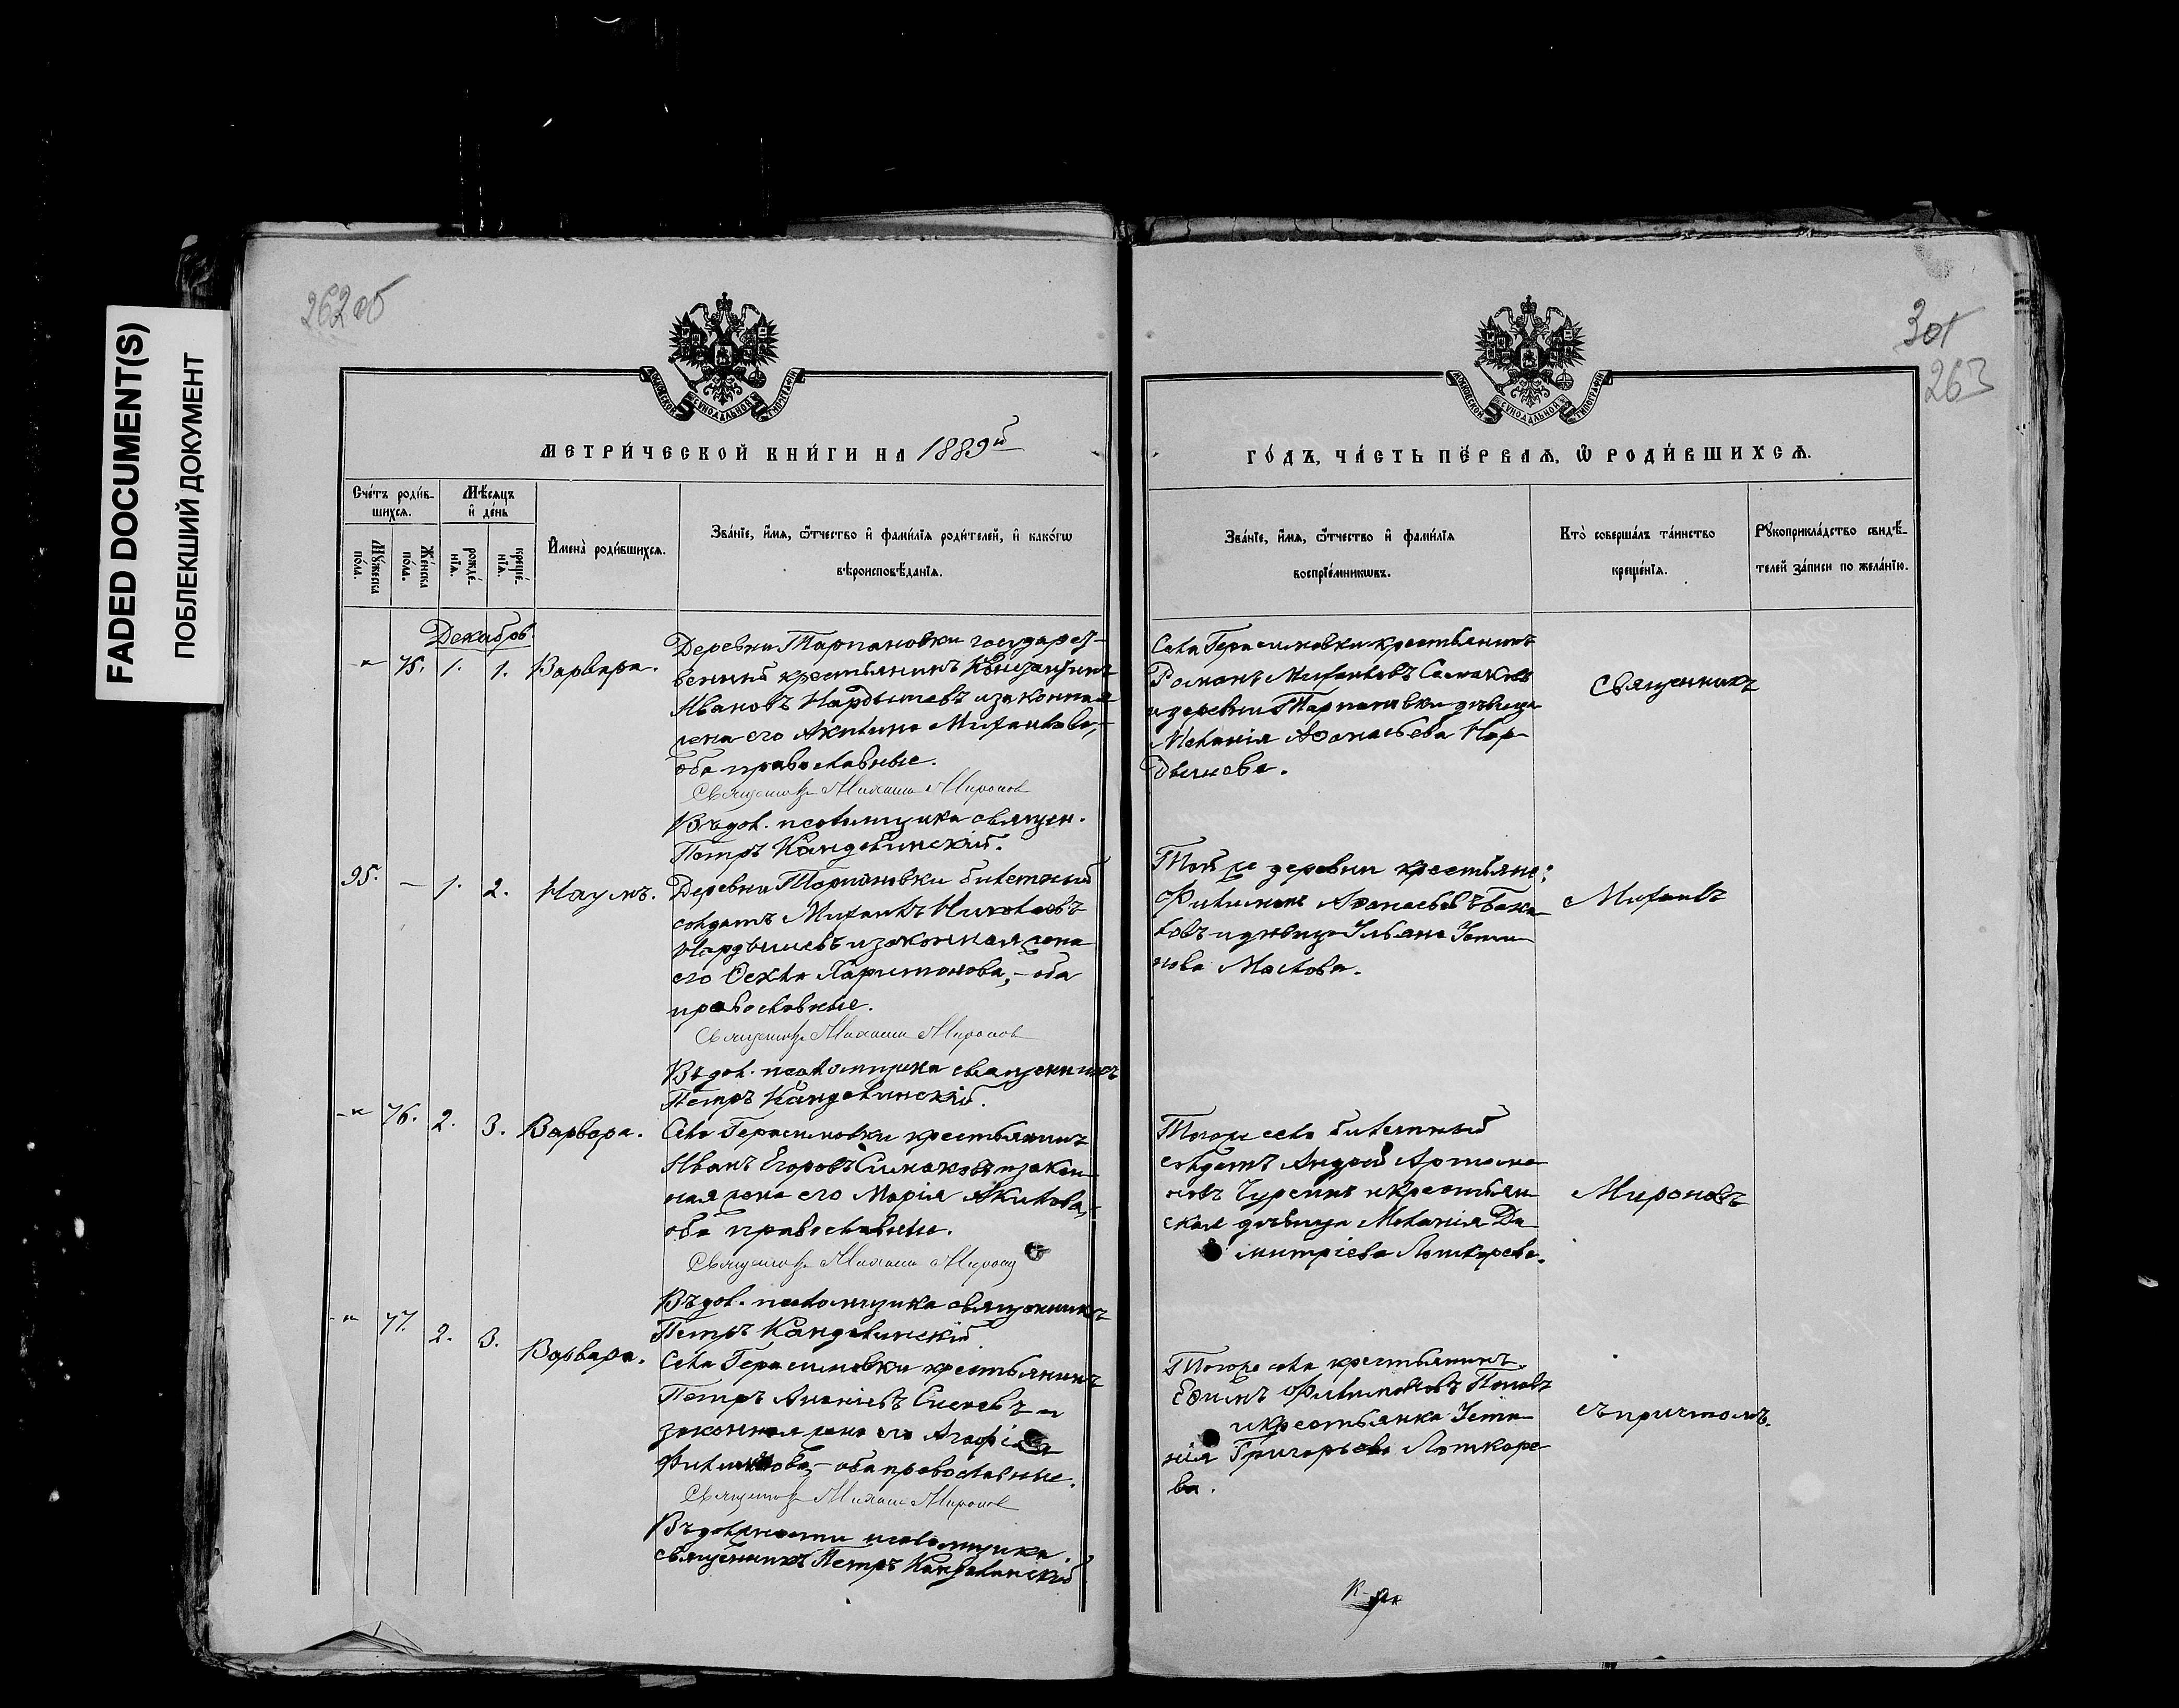 FADED DOCUMENT(S)
ПОБЛЕКШИЙ ДОКУМЕНТ
262об
МЕТРИ́ЧЕСКОЙ КНИ́ГИ НА 1889й
Сче́тъ роди́в-
шихсѧ.
Мꙋ́жеска
по́ла.
Же́нска
по́ла.
Мѣ́сѧцъ
и҆ де́нь
рожде́-
нїѧ.
креще́-
нїѧ.
И҆мена̀ роди́вшихсѧ.
Зва́нїе, и҆́мѧ, ѻ҆́тчество и҆ фами́лїѧ роди́телей, и҆ како́гѡ
вѣроисповѣ́данїѧ.
Декабрь
-"- 75. 1. 1. Варвара.
Деревни Тарпановки государст-
венный крестьянинъ
Ивановъ Нардышевъ и законная
жена его Акилина Михаилова,-
оба православные.
Священникъ Михаил Миронов
Въ дол. псаломщика священ.
Петръ Кандалинскій.
95. - 1. 2. Наумъ.
Деревни Тарпановки билетный
солдатъ Михаилъ Николаевъ
Нардышевъ и законная жена
его Фекла Харитонова,- оба
православные.
Священникъ Михаил Миронов
Въ дол. псаломщика священникъ
Петръ Кандалинскій.
-"- 76. 2. 3. Варвара.
Села Герасимовки крестьянинъ
Иванъ Егоровъ Симаковъ и закон-
ная жена его Марія Акилова,-
оба православные.
Священникъ Михаил Миронов
Въ дол. псаломщика священникъ
Петръ Кандалинскій
-"- 77. 2. 3. Варвара.
Села Герасимовки крестьянинъ
Петръ Ананіевъ и
законная жена его Агафія
оба православные.
Священникъ Михаил Миронов
Въ должности псаломщика
священникъ Петръ Кандалинскій
301
263
ГО́ДЪ, ЧА́СТЬ ПЕ́РВАѦ, Ѡ҆ РОДИ́ВШИХСѦ.
Зва́нїе, и҆́мѧ, ѻ҆́тчество и҆ фами́лїѧ
воспрїе́мникѡвъ.
Кто̀ соверша́лъ та́инство
креще́нїѧ.
Рꙋкоприкла́дство свидѣ́-
телей за́писи по жела́нїю.
Села Герасимовки крестьянинъ
Романъ Михаиловъ Симаковъ
и деревни Тарпановки дѣвица
Меланія Афанасьева Нар-
дышева.
Священникъ
Той же деревни крестьяне:
Филимонъ Афанасьевъ Бака-
ловъ и дѣвица Ульяна
нова Маслова.
Михаилъ
Тогоже села билетный
солдатъ Андрей Артамо-
новъ Чуреинъ и крестьян-
ская дѣвица Меланія Ди-
митріева Лошкарева.
Мироновъ
Тогоже села крестьянинъ
Ефимъ Филимоновъ Поповъ
и крестьянка Усти-
нія Григорьева Лошкаре-
ва.
съ причтомъ.